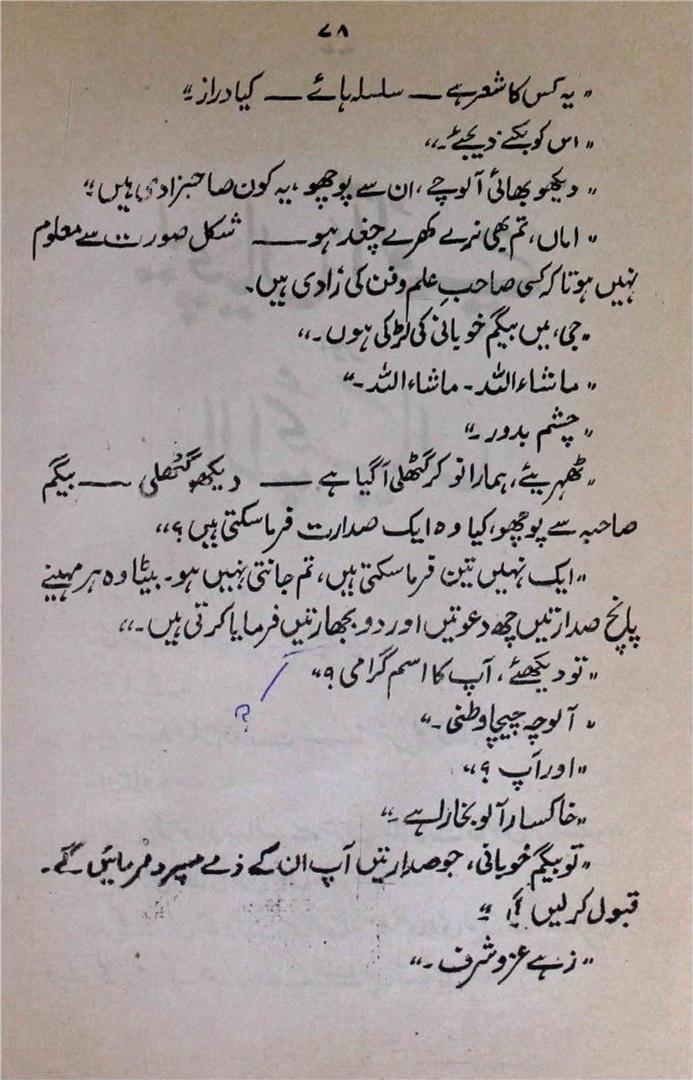 ۷۸
"یہ کس کا شعر ہے — سلسلہ ہائے — کیا دراز۔"
"اس کو بکنے دیجئے۔"
"دیکھو بھائی آلوچے، ان سے پوچھو، یہ کون صاحبزادی ہیں۔"
"اماں، تم بھی نرے کھرے چغد ہو — شکل صورت سے معلوم
نہیں ہوتا کہ کسی صاحبِ علم و فن کی زادی ہیں۔
"جی، میں بیگم خوبانی کی لڑکی ہوں۔"
"ماشاء اللہ۔ ماشاء اللہ۔"
"چشم بدور۔"
"ٹھہریئے، ہمارا نوکر گٹھلی آگیا ہے — دیکھ گٹھلی — بیگم
صاحبہ سے پوچھو، کیا وہ ایک صدارت فرما سکتی ہیں؟"
"ایک نہیں تین فرما سکتی ہیں، تم جانتی نہیں ہو۔ بیٹا وہ ہر مہینے
پانچ صدارتیں چھ دعوتیں اور دو بجھارتیں فرمایا کرتی ہیں۔"
"تو دیکھئے، آپ کا اسم گرامی؟"
"آلوچہ چیچا وطنی۔"
"اور آپ؟"
"خاکسار آلو بخارا ہے۔"
"تو بیگم خوبانی، جو صدارتیں آپ ان کے ذمے سپرد فرمائیں گے۔
قبول کر لیں گی۔"
"زہے عز و شرف۔"